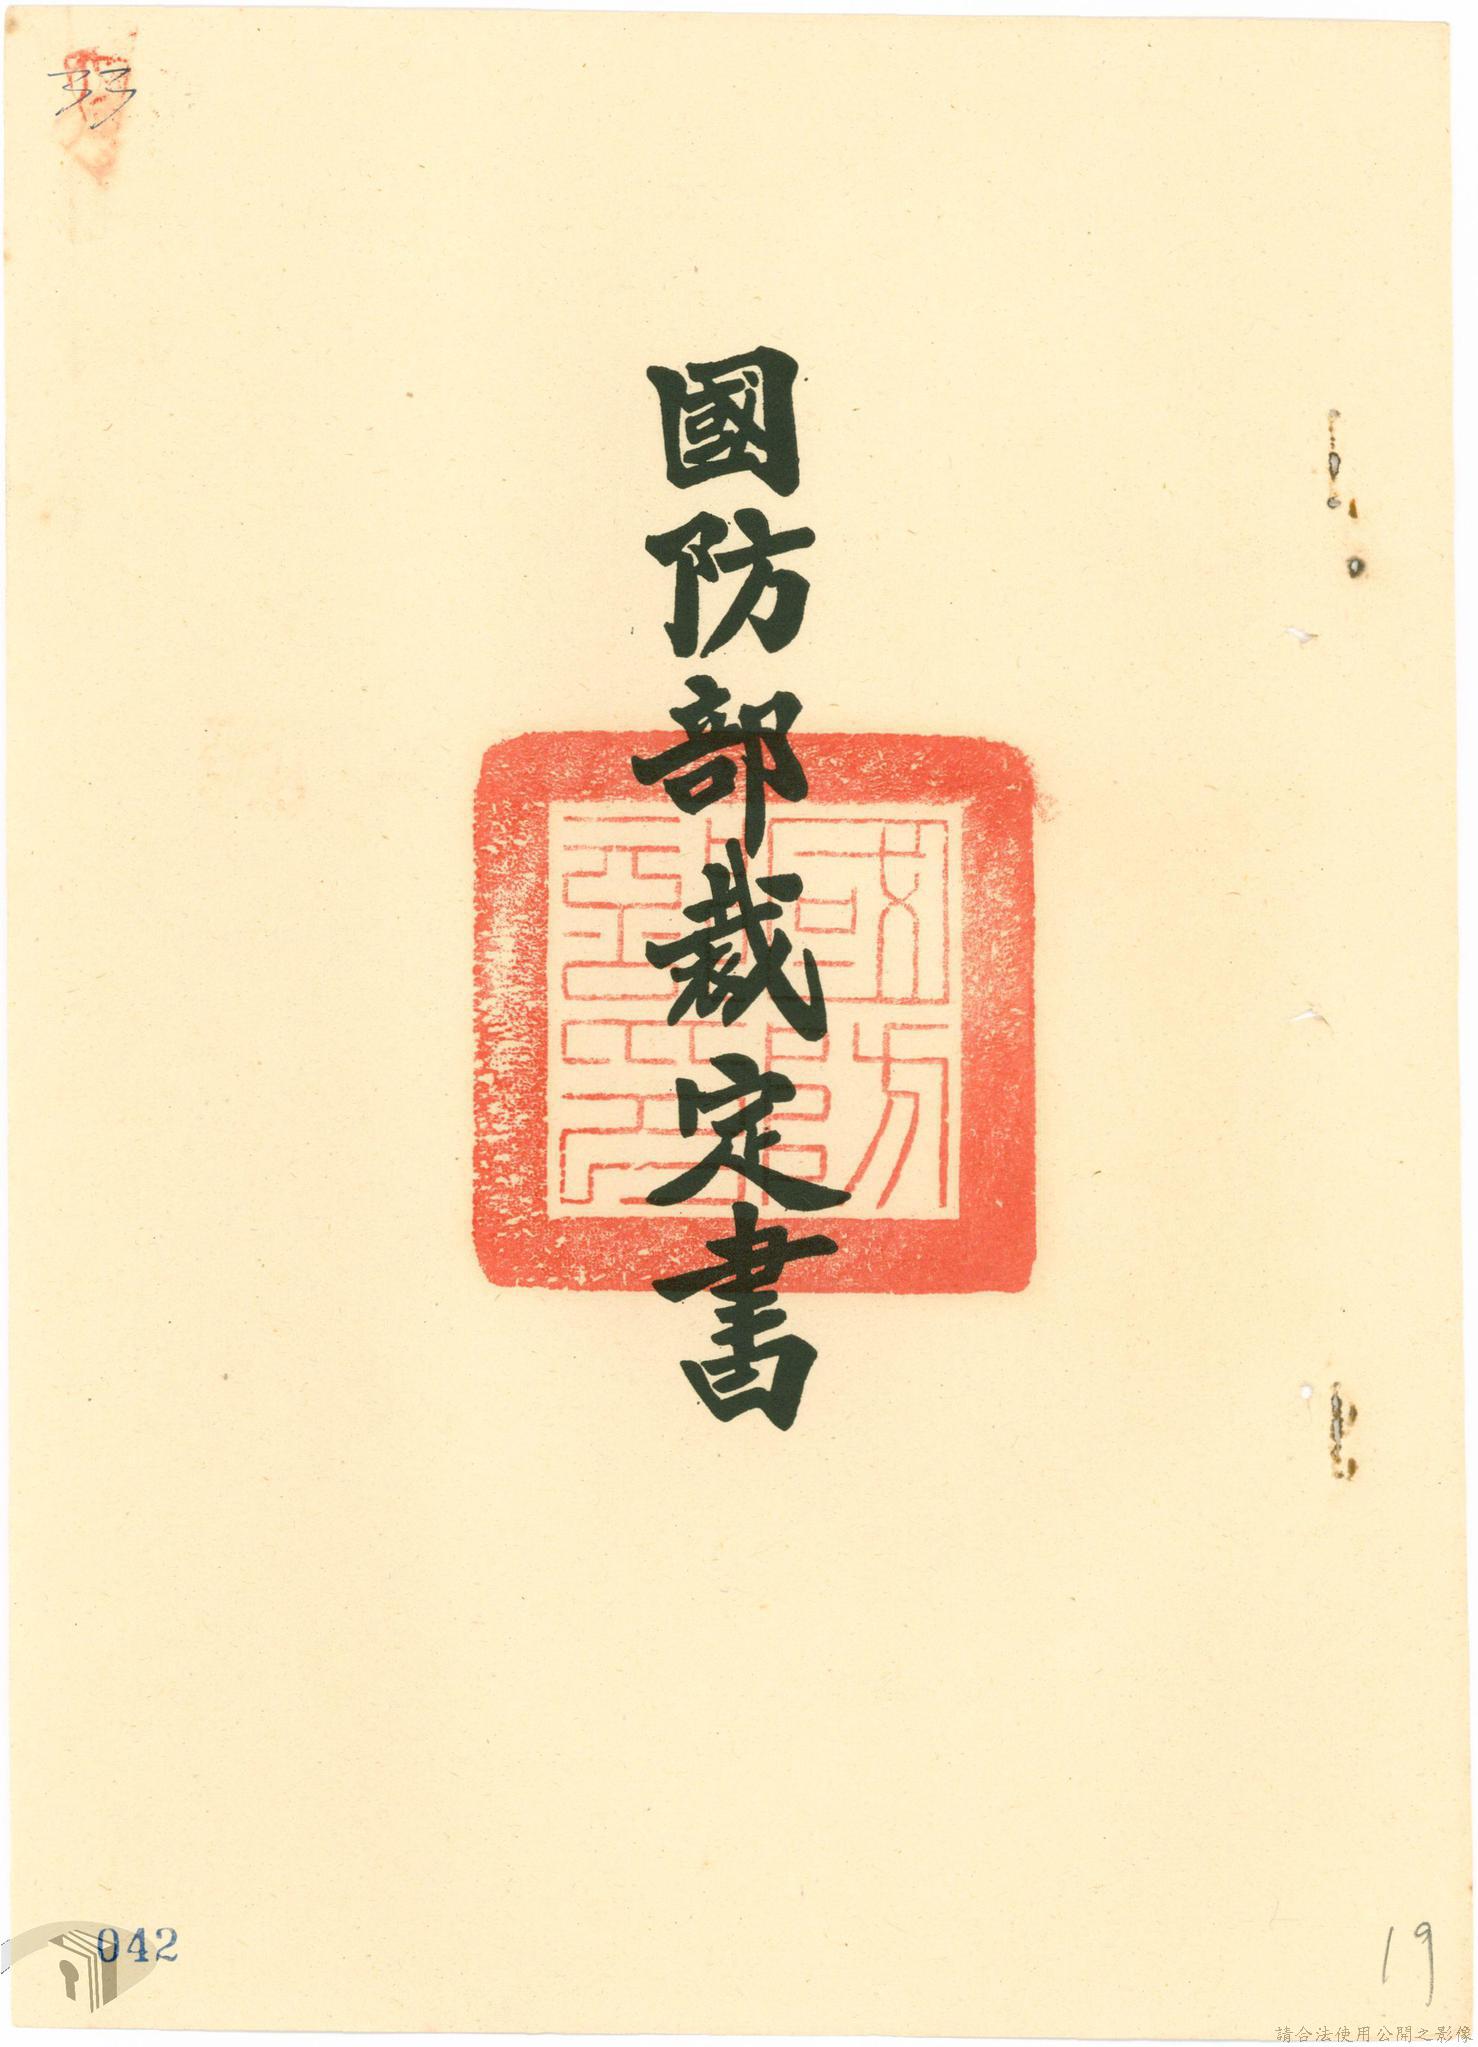 33
國防部裁定書
042
19
請合法使用公開之影像